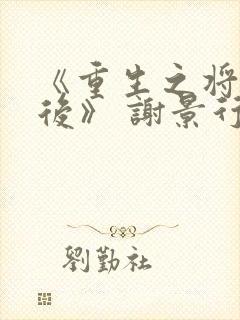 《重生之将
後》 謝景行
劉勤社